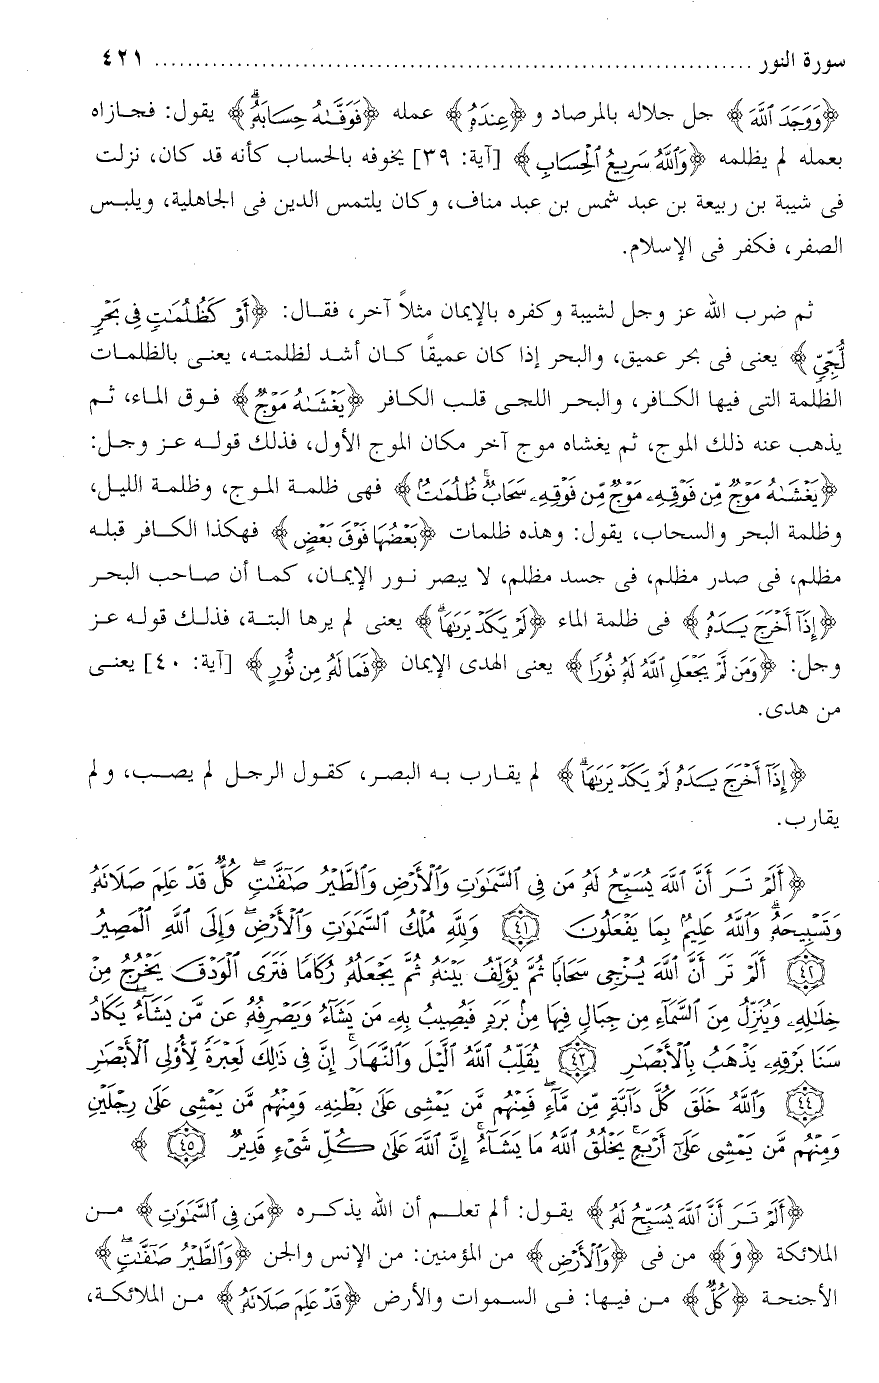 سورة النور ........................................................................ ٤٢١
﴿وَوَجَدَ ٱللَّهَ﴾ جل جلاله بالمرصاد و﴿عِندَهُۥ﴾ عمله ﴿فَوَفَّىٰهُ حِسَابَهُۥۗ﴾ يقول: فجازاه
بعمله لم يظلمه ﴿وَٱللَّهُ سَرِيعُ ٱلْحِسَابِ﴾ [آية: ٣٩] يخوفه بالحساب كأنه قد كان، نزلت
فى شيبة بن ربيعة بن عبد شمس بن عبد مناف، وكان يلتمس الدين فى الجاهلية، ويلبس
الصفر، فكفر فى الإسلام.
ثم ضرب الله عز وجل لشيبة وكفره بالإيمان مثلاً آخر، فقال: ﴿أَوْ كَظُلُمَٰتٍ فِى بَحْرٍ
لُّجِّىٍّ﴾ يعنى فى بحر عميق، والبحر إذا كان عميقًا كان أشد لظلمته، يعنى بالظلمات
الظلمة التى فيها الكافر، والبحر اللجى قلب الكافر ﴿يَغْشَىٰهُ مَوْجٌ﴾ فوق الماء، ثم
يذهب عنه ذلك الموج، ثم يغشاه موج آخر مكان الموج الأول، فذلك قوله عز وجل:
﴿يَغْشَىٰهُ مَوْجٌ مِّن فَوْقِهِۦ مَوْجٌ مِّن فَوْقِهِۦ سَحَابٌۚ ظُلُمَٰتٌۢ﴾ فهى ظلمة الموج، وظلمة الليل،
وظلمة البحر والسحاب، يقول: وهذه ظلمات ﴿بَعْضُهَا فَوْقَ بَعْضٍ﴾ فهكذا الكافر قبله
مظلم، فى صدر مظلم، فى جسد مظلم، لا يبصر نور الإيمان، كما أن صاحب البحر
﴿إِذَآ أَخْرَجَ يَدَهُۥ﴾ فى ظلمة الماء ﴿لَمْ يَكَدْ يَرَىٰهَاۗ﴾ يعنى لم يرها البتة، فذلك قوله عز
وجل: ﴿وَمَن لَّمْ يَجْعَلِ ٱللَّهُ لَهُۥ نُورًا﴾ يعنى الهدى الإيمان ﴿فَمَا لَهُۥ مِن نُّورٍ﴾ [آية: ٤٠] يعنى
من هدى.
﴿إِذَآ أَخْرَجَ يَدَهُۥ لَمْ يَكَدْ يَرَىٰهَاۗ﴾ لم يقارب به البصر، كقول الرجل لم يصب، ولم
يقارب.
﴿أَلَمْ تَرَ أَنَّ ٱللَّهَ يُسَبِّحُ لَهُۥ مَن فِى ٱلسَّمَٰوَٰتِ وَٱلْأَرْضِ وَٱلطَّيْرُ صَٰٓفَّٰتٍۖ كُلٌّ قَدْ عَلِمَ صَلَاتَهُۥ
وَتَسْبِيحَهُۥۗ وَٱللَّهُ عَلِيمٌۢ بِمَا يَفْعَلُونَ ﴿٤١﴾ وَلِلَّهِ مُلْكُ ٱلسَّمَٰوَٰتِ وَٱلْأَرْضِۖ وَإِلَى ٱللَّهِ ٱلْمَصِيرُ
﴿٤٢﴾ أَلَمْ تَرَ أَنَّ ٱللَّهَ يُزْجِى سَحَابًا ثُمَّ يُؤَلِّفُ بَيْنَهُۥ ثُمَّ يَجْعَلُهُۥ رُكَامًا فَتَرَى ٱلْوَدْقَ يَخْرُجُ مِنْ
خِلَٰلِهِۦ وَيُنَزِّلُ مِنَ ٱلسَّمَآءِ مِن جِبَالٍ فِيهَا مِنۢ بَرَدٍ فَيُصِيبُ بِهِۦ مَن يَشَآءُ وَيَصْرِفُهُۥ عَن مَّن يَشَآءُۖ يَكَادُ
سَنَا بَرْقِهِۦ يَذْهَبُ بِٱلْأَبْصَٰرِ ﴿٤٣﴾ يُقَلِّبُ ٱللَّهُ ٱلَّيْلَ وَٱلنَّهَارَۚ إِنَّ فِى ذَٰلِكَ لَعِبْرَةً لِّأُو۟لِى ٱلْأَبْصَٰرِ
﴿٤٤﴾ وَٱللَّهُ خَلَقَ كُلَّ دَآبَّةٍ مِّن مَّآءٍۖ فَمِنْهُم مَّن يَمْشِى عَلَىٰ بَطْنِهِۦ وَمِنْهُم مَّن يَمْشِى عَلَىٰ رِجْلَيْنِ
وَمِنْهُم مَّن يَمْشِى عَلَىٰٓ أَرْبَعٍۚ يَخْلُقُ ٱللَّهُ مَا يَشَآءُۚ إِنَّ ٱللَّهَ عَلَىٰ كُلِّ شَىْءٍ قَدِيرٌ ﴿٤٥﴾ ﴾
﴿أَلَمْ تَرَ أَنَّ ٱللَّهَ يُسَبِّحُ لَهُۥ﴾ يقول: ألم تعلم أن الله يذكره ﴿مَن فِى ٱلسَّمَٰوَٰتِ﴾ من
الملائكة ﴿وَ﴾ من فى ﴿وَٱلْأَرْضِ﴾ من المؤمنين: من الإنس والجن ﴿وَٱلطَّيْرُ صَٰٓفَّٰتٍۖ﴾
الأجنحة ﴿كُلٌّ﴾ من فيها: فى السموات والأرض ﴿قَدْ عَلِمَ صَلَاتَهُۥ﴾ من الملائكة،